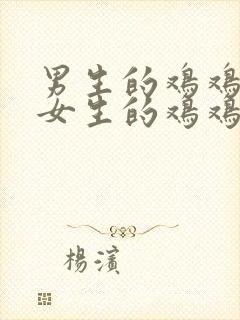 男生的鸡鸡
女生的鸡鸡
楊濱